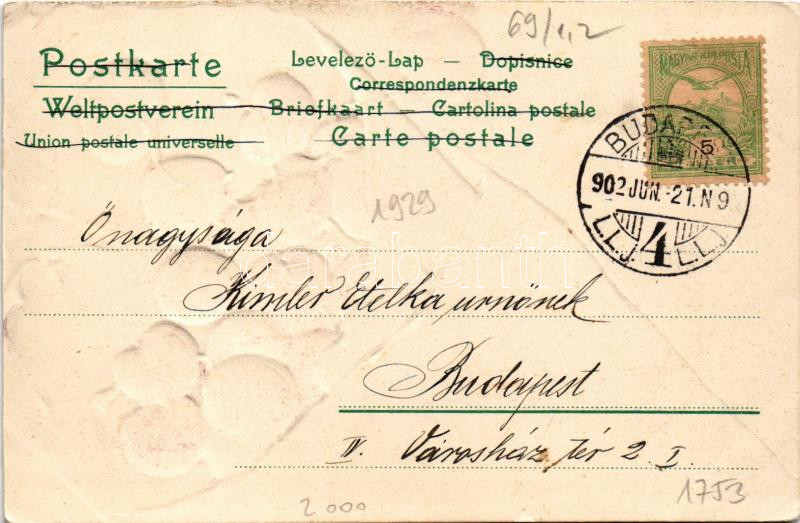 69/1,2
Postkarte
Levelező-Lap — Dopisnice
Correspondenzkarte
Weltpostverein — Briefkaart — Cartolina postale
Union postale universelle
Carte postale
MAGYAR KIR. POSTA
5
BUDAPEST
902 JUN.-21.N9
L.L.J. 4 L.L.J.
1929
Őnagysága
Kimler Etelka urnőnek
Budapest
IV. Városház tér 2. I.
2000
1753